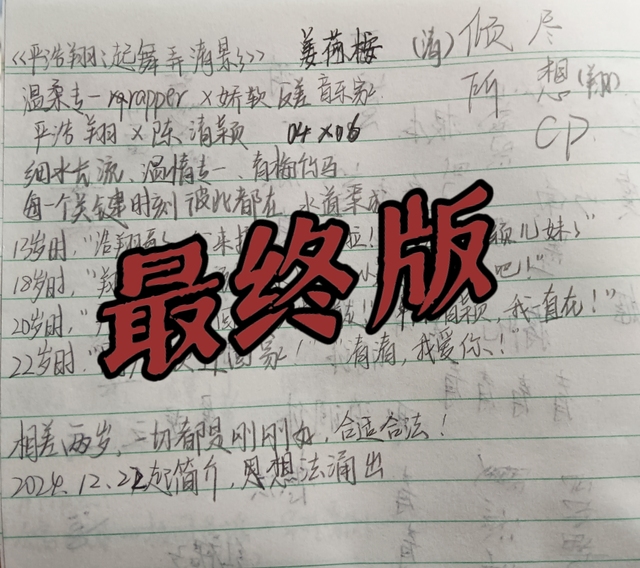 《严浩翔:起舞弄清影》 姜荷桉 (清)倾尽
所想(翔)
CP
温柔专一rapper×娇软美音乐家
严浩翔×陈清颖 04×06
细水长流、温情专一、青梅竹马
每一个关键时刻彼此都在,水道渠成
13岁时,"浩翔哥 来 颖儿妹
18岁时,"翔 吧!"
20岁时," 清颖,我一直在!"
22岁时," 回家!""清清,我爱你!"
最终版
相差两岁,一切都是刚刚好,合适合法!
2024.12.22起简介,思想法涌出